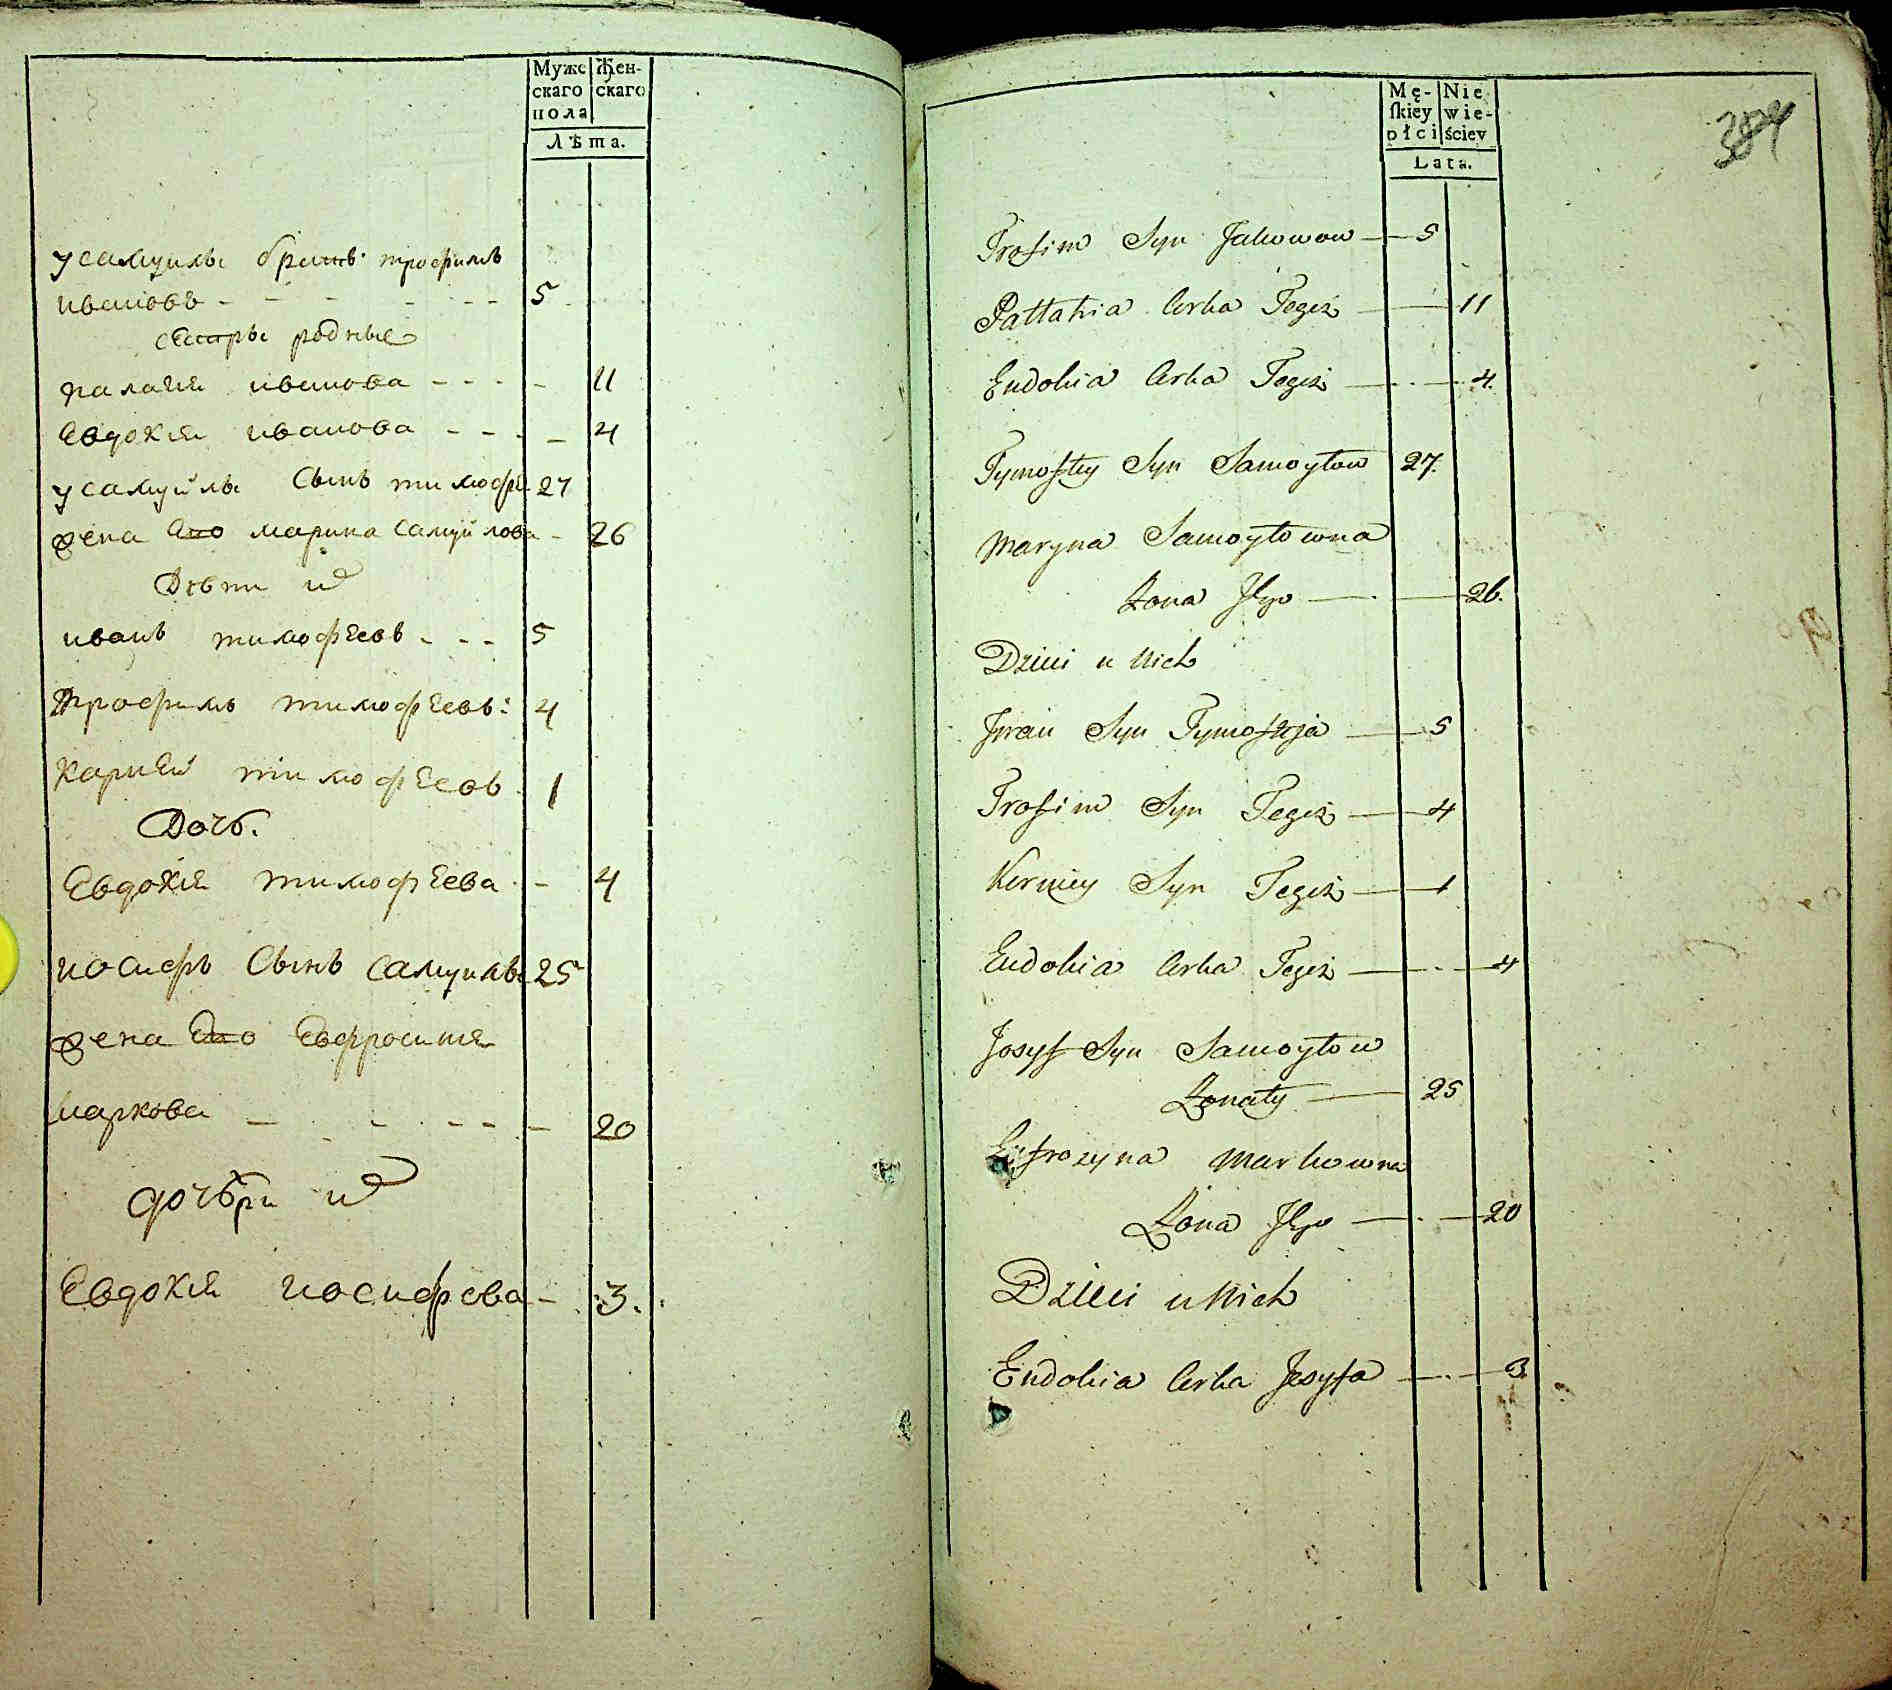 Муже Жен-
скаго скаго
пола
Лѣта.
у самуилы братъ трофимъ
ивановъ - - - - - - 5
сестры родные
палагия иванова - - - - 11
Евдокия иванова - - - - 4
у самуйлы Сынъ тимофе 27
жена Его марина Самуйлова - 26
Дѣти их
иванъ тимофеевъ - - - 5
трофимъ тимофеевъ: 4
тимофеевъ 1
Дочь.
Евдокия тимофеева - 4
иосифъ Сынъ Самуилов 25
жена Его Евфросиния
маркова - - - - - 20
их
Евдокия иосифова - 3.
Mę- Nie
ſkiey wie-
płci ściey
Lata.
384
Trofim Syn Jakowow — 5
Pallahia Corka Tegoż — 11
Eudokia Corka Tegoż — 4.
Tymofiey Syn Samoyłow 27.
Maryna Samoyłowna
Żona Jego — 26.
Dzieci u Nich
Jwan Syn Tymofieja — 5
Trofim Syn Tegoż — 4
Syn Tegoż — 1
Eudokia Corka Tegoż — 4
Josyf Syn Samoyłow
Żonaty — 25
Eufrozyna Markowna
Żona Jego — 20
Dzieci u Nich
Eudokia Corka Josyfa — 3.